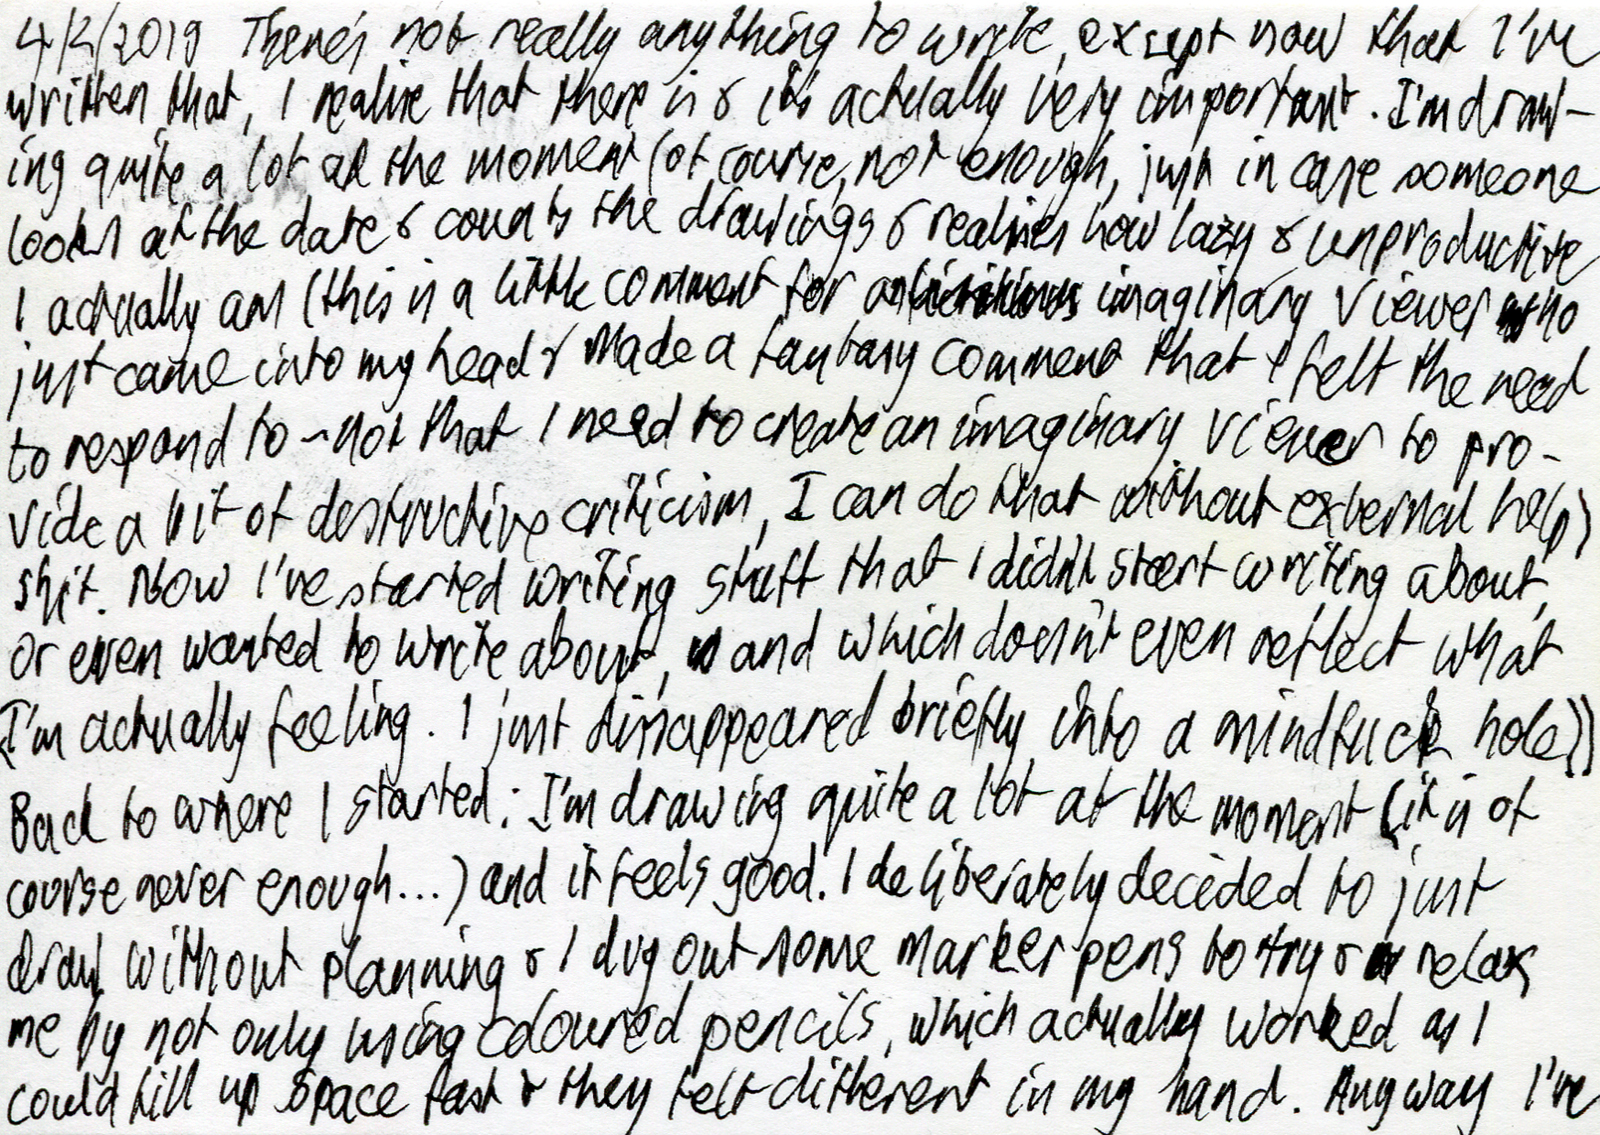 4/2/2019 There's not really anything to write, except now that I've
written that, I realise that there is & it's actually very important. I'm draw-
ing quite a lot at the moment (of course, not enough, just in case someone
looks at the date & counts the drawings & realises how lazy & unproductive
I actually am (this is a little comment for an imaginary viewer who
just came into my head & made a fantasy comment that I felt the need
to respond to – not that I need to create an imaginary viewer to pro-
vide a bit of destructive criticism, I can do that without external help)
shit. Now I've started writing stuff that I didn't start writing about,
or even wanted to write about, and which doesn't even reflect what
I'm actually feeling. I just disappeared briefly into a mindfuck hole))
Back to where I started: I'm drawing quite a lot at the moment (it is of
course never enough...) and it feels good. I deliberately decided to just
draw without planning & I dug out some marker pens to try & relax
me by not only using coloured pencils, which actually worked as I
could fill up space fast & they felt different in my hand. Anyway I've